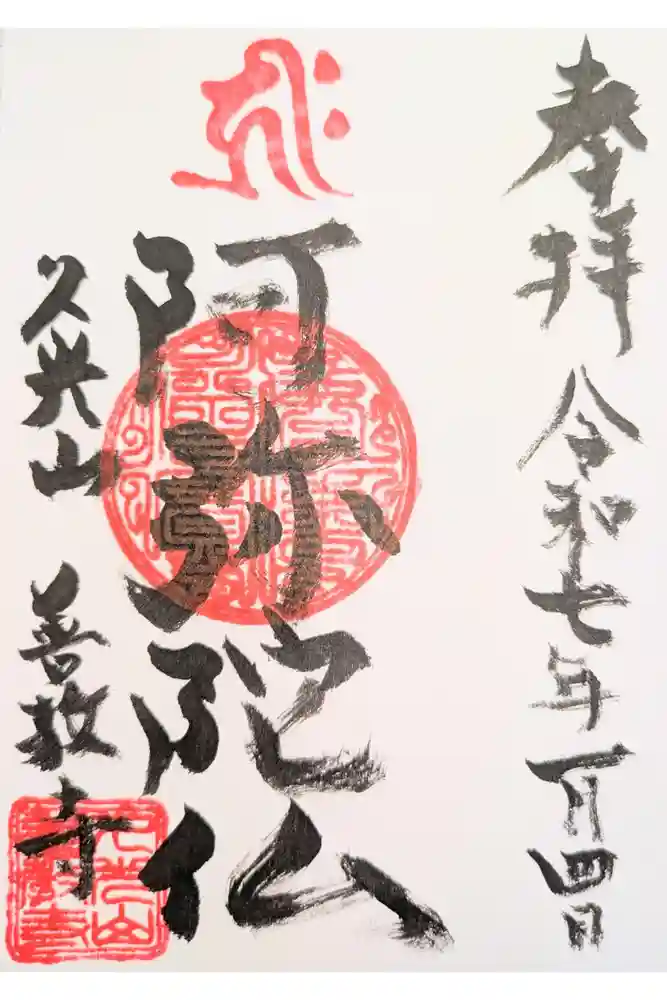 奉拝 令和七年一月四日
阿弥陀仏
久光山 善教寺